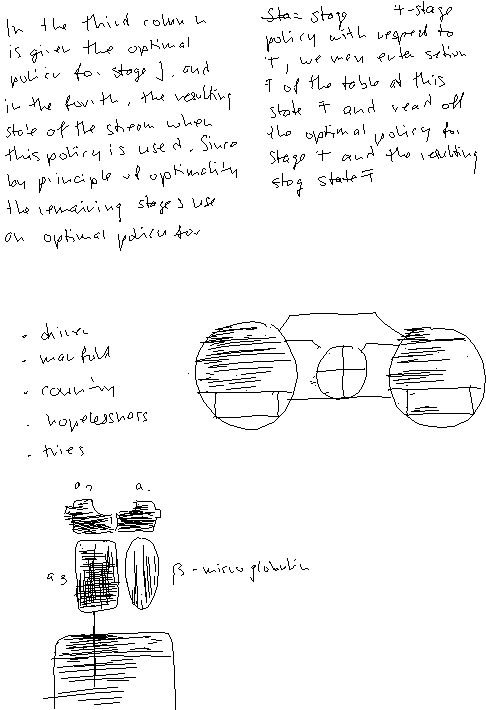 In the third column
is given the optimal
policy for stage J, and
in the fourth, the resulting
state of the stream when
this policy is used. Since
by principle of optimality
the remaining stages use
an optimal policy for
stage T-stage
policy with respect to
T, we may enter section
T of the table at this
state T and read off
the optimal policy for
stage T and the resulting
state T
· manifold
· hopelessness
· tires
a2 a1
a3 β-microglobulin